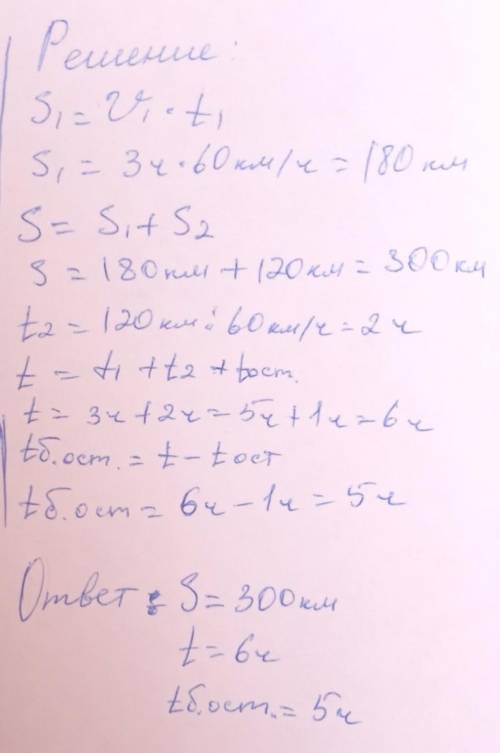 Решение:
S₁ = V₁ · t₁
S₁ = 3ч · 60км/ч = 180км
S = S₁ + S₂
S = 180км + 120км = 300км
t₂ = 120км : 60км/ч = 2ч
t = t₁ + t₂ + tост.
t = 3ч + 2ч = 5ч + 1ч = 6ч
tб.ост. = t - tост
tб.ост = 6ч - 1ч = 5ч
Ответ: S = 300км
t = 6ч
tб.ост. = 5ч